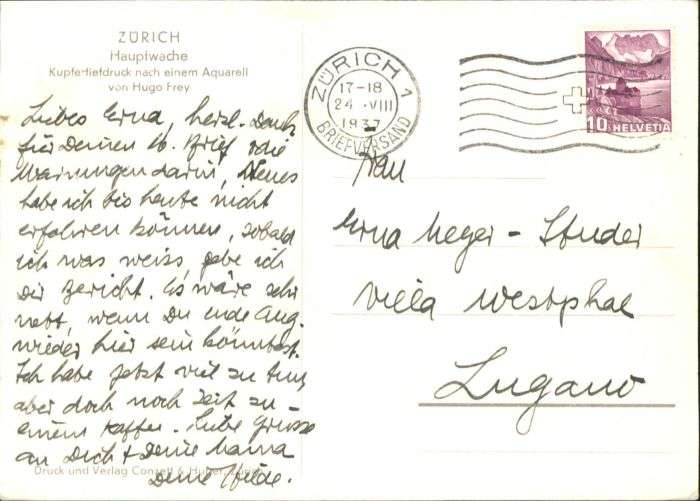 ZÜRICH
Hauptwache
Kupfertiefdruck nach einem Aquarell
von Hugo Frey
Liebes Erna, herzl. Dank
für Deinen lb. Brief, die
Warnungen darin, Neues
habe ich bis heute nicht
erfahren können, sobald
ich was weiss, gebe ich
Dir Bericht. Es wäre sehr
nett, wenn Du ende Aug.
wieder hier sein könntest.
Ich habe jetzt viel zu tun,
aber doch noch Zeit zu
einem Kaffee. Liebe Grüsse
an Dich + Deine Mama
Deine Hilde.
Druck und Verlag Conzett & Huber, Zürich
ZÜRICH 1
17-18
24.VIII
1937
BRIEFVERSAND
10 HELVETIA
Frau
Erna Meyer - Studer
Villa Westphal
Lugano